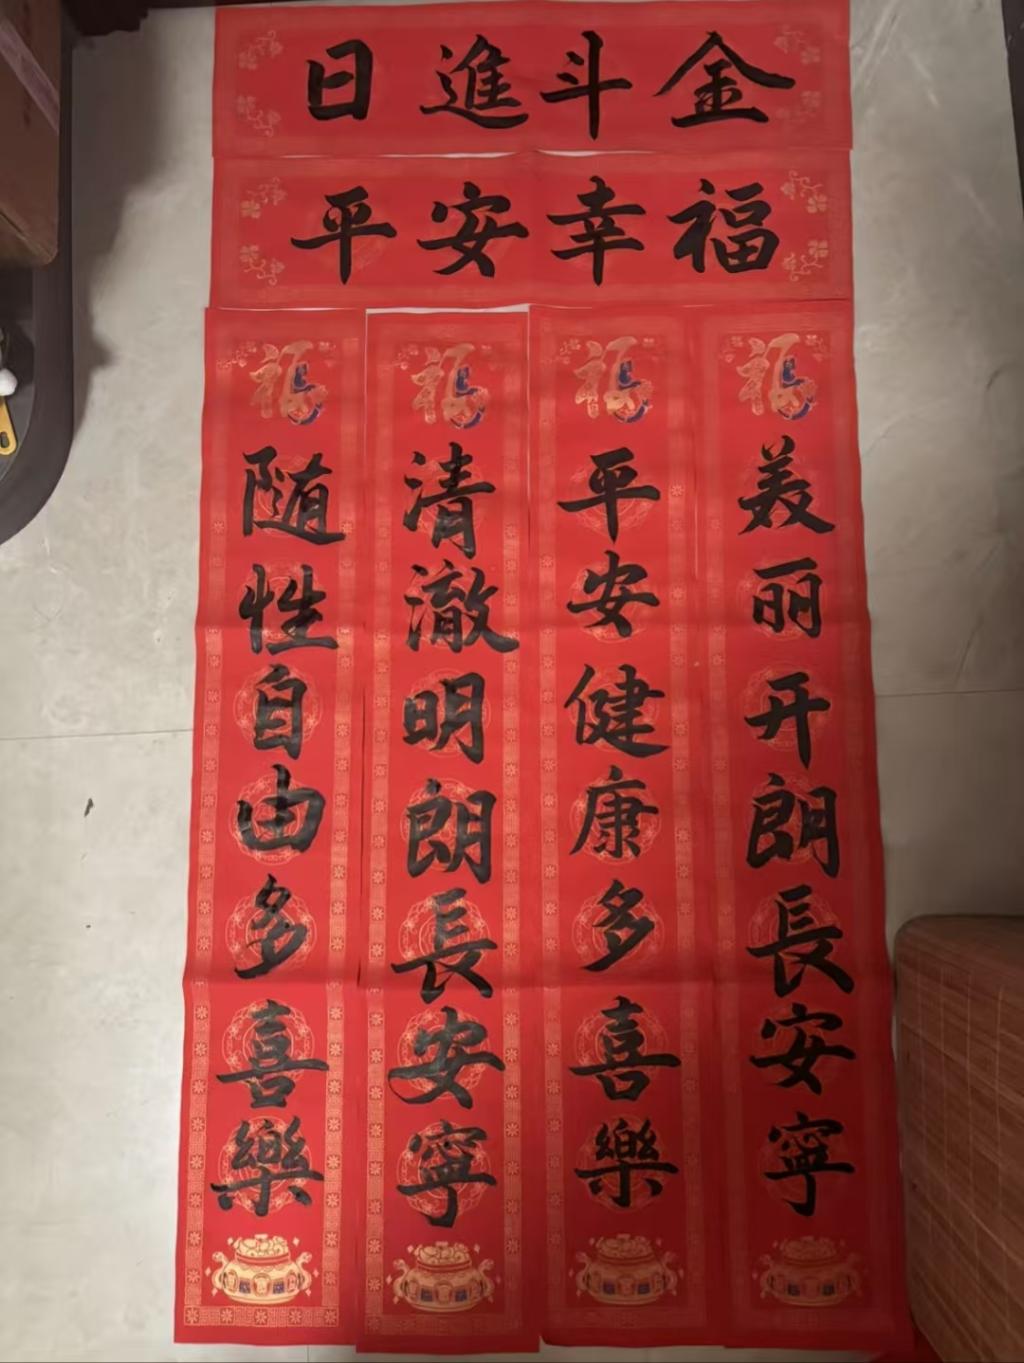 日進斗金
平安幸福
福
美丽开朗長安寧
福
平安健康多喜樂
福
清澈明朗長安寧
福
随性自由多喜樂